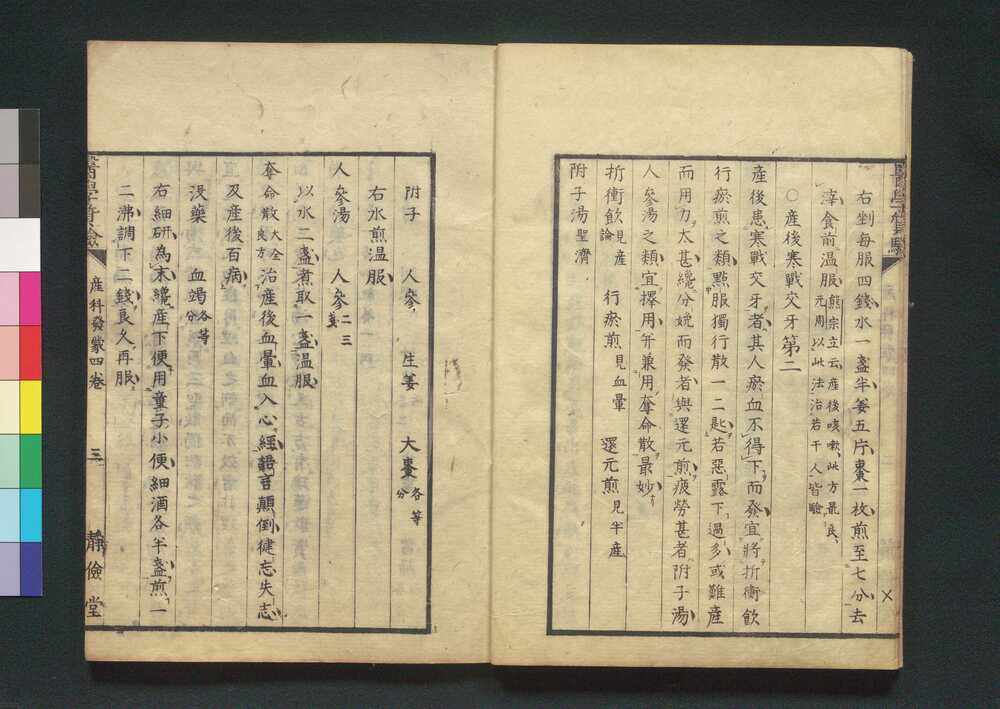 右剉每服四錢水一盞半姜五片棗一枚煎至七分去
滓食前溫服熊宗立云產後咳嗽此方最良
元周以此法治若干人皆驗
○產後寒戰交牙第二
產後患寒戰交牙者其人瘀血不得下而發宜將折衝飲
行瘀煎之類點服獨行散一二匙若惡露下過多或難產
而用力太甚纔分娩而發者與還元煎疲勞甚者附子湯
人參湯之類宜擇用并兼用奪命散最妙
折衝飲見產論 行瘀煎見血暈 還元煎見半產
附子湯聖濟
附子 人參 生姜 大棗各等分
右水煎溫服
人參湯 人參二三
以水二盞煮取一盞溫服
奪命散大全良方治產後血暈血入心經語言顛倒健忘失志
及產後百病
沒藥 血竭各等分
右細研為末纔產下便用童子小便細酒各半盞煎一
二沸調下二錢良久再服
醫學
產科發蒙四卷
三
靜儉堂